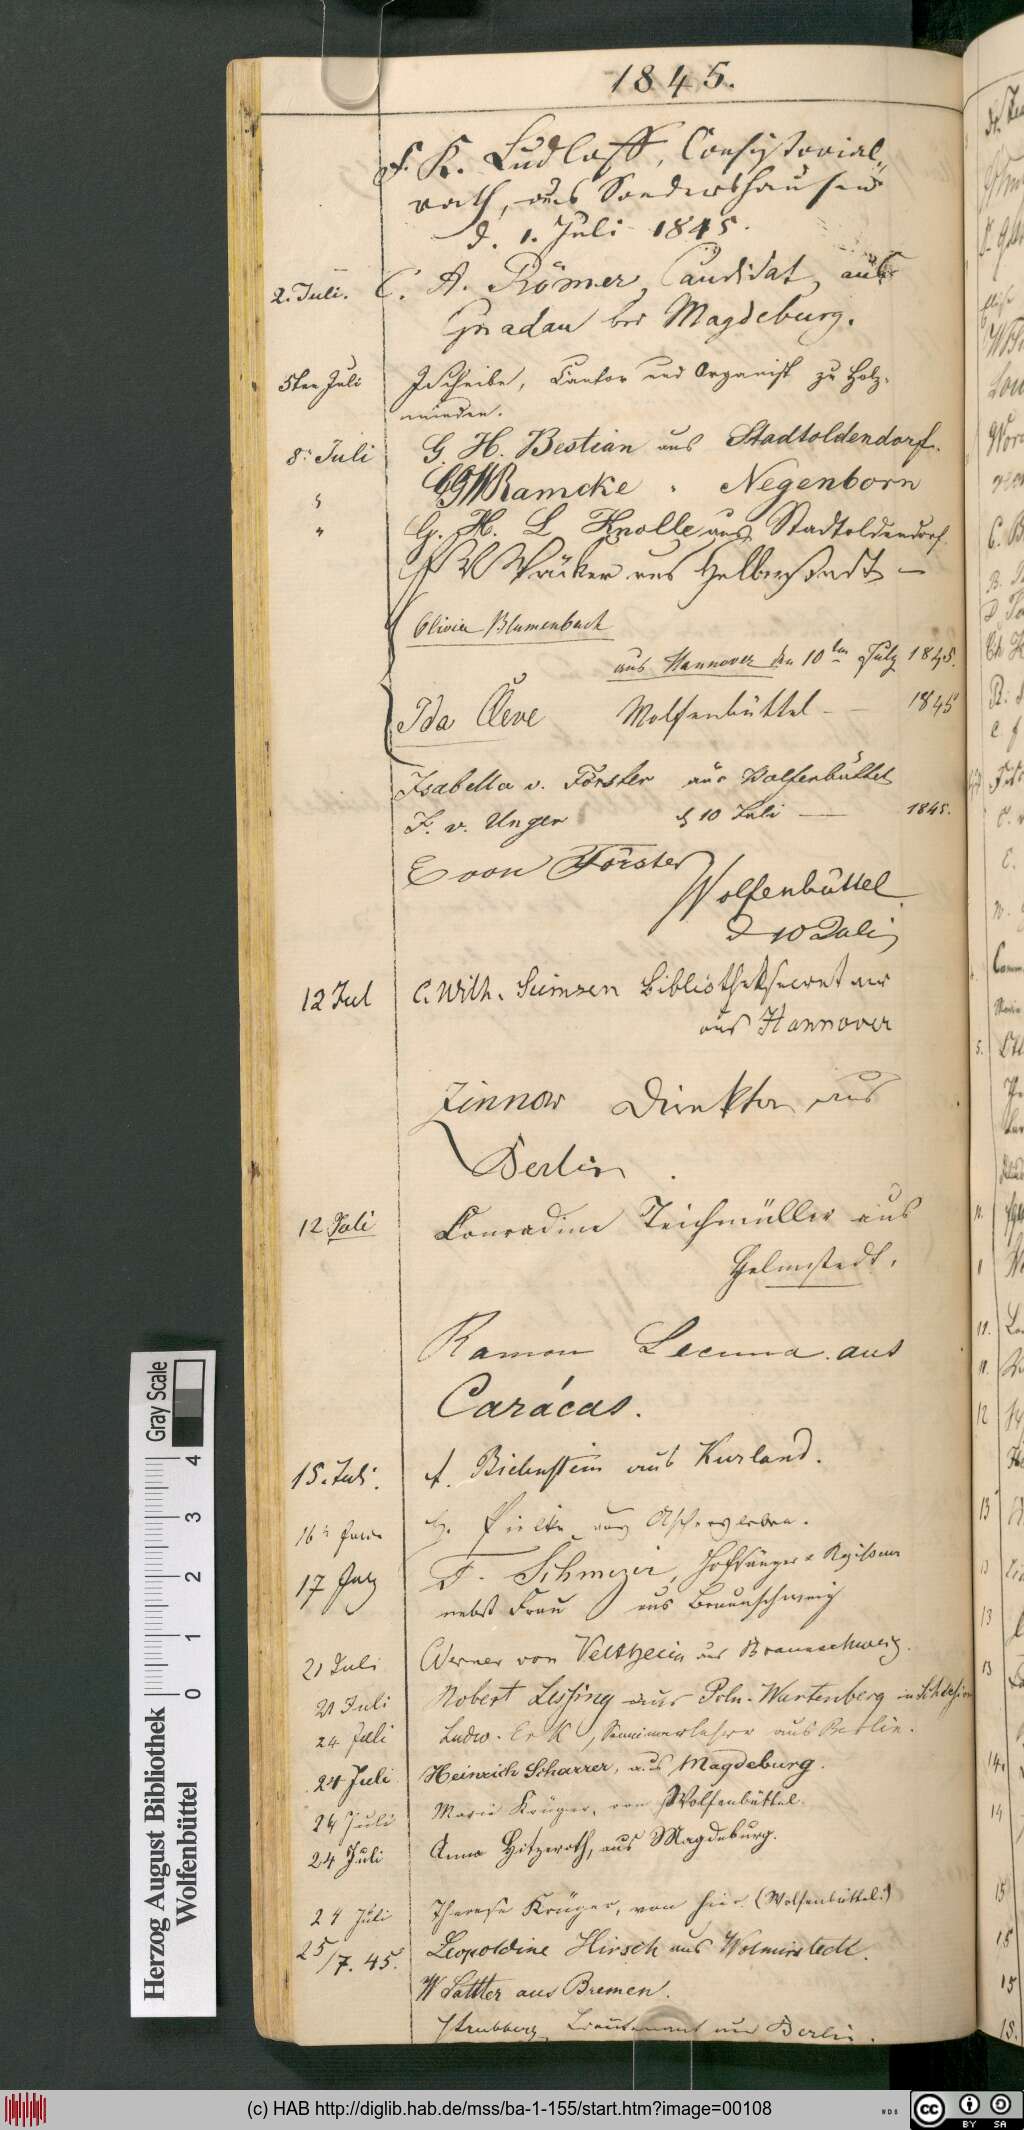 1845.
F. K. Ludloff, Consistorial-
rath, aus Sondershausen
d. 1. Juli 1845.
2. Juli. C. A. Römer, Candidat, aus
Gnadau bei Magdeburg.
5ten Juli Scheibe, Cantor und Organist zu Holz-
minden.
8. Juli G. H. Bestian aus Stadtoldendorf.
" Ramcke " Negenborn
" G. H. L Knolle aus Stadtoldendorf.
aus Halberstadt —
Olivia Blumenbach
aus Hannover den 10ten July 1845.
Ida Cleve Wolfenbüttel — 1845
Isabella v. Förster aus Wolfenbüttel
F. v. Unger d 10 Juli — 1845.
E von Förster
Wolfenbüttel
d 10 Juli
12 Jul C. Wilh. Bibliotheksecretair
aus Hannover
Zinnow Direktor aus
Berlin.
12 Juli Conradine Teichmüller aus
Helmstedt.
Ramon Lecuna aus
Carácas.
15. Juli. A. Bielenstein aus Kurland.
16 aus Aschersleben.
17 July F. Schmezer, Hofsänger u Regisseur
nebst Frau aus Braunschweig
21 Juli Werner von Veltheim aus Braunschweig.
21 Juli Robert Lessing aus Poln. Wartenberg in Schlesien
24 Juli Ludw. Erk, Seminarlehrer aus Berlin.
24 Juli Heinrich Scharrer, aus Magdeburg.
24 Juli Marie Krüger, von Wolfenbüttel.
24 Juli Anna Hitzeroth, aus Magdeburg.
24 Juli Therese Krüger, von hier. (Wolfenbüttel.)
25/7. 45. Leopoldine Hirsch aus Wolmirstedt.
W Sattler aus Bremen.
Strubberg, Lieutenant aus Berlin.
Gray Scale
0 1 2 3 4
Herzog August Bibliothek
Wolfenbüttel
(c) HAB http://diglib.hab.de/mss/ba-1-155/start.htm?image=00108
WDB
cc BY SA